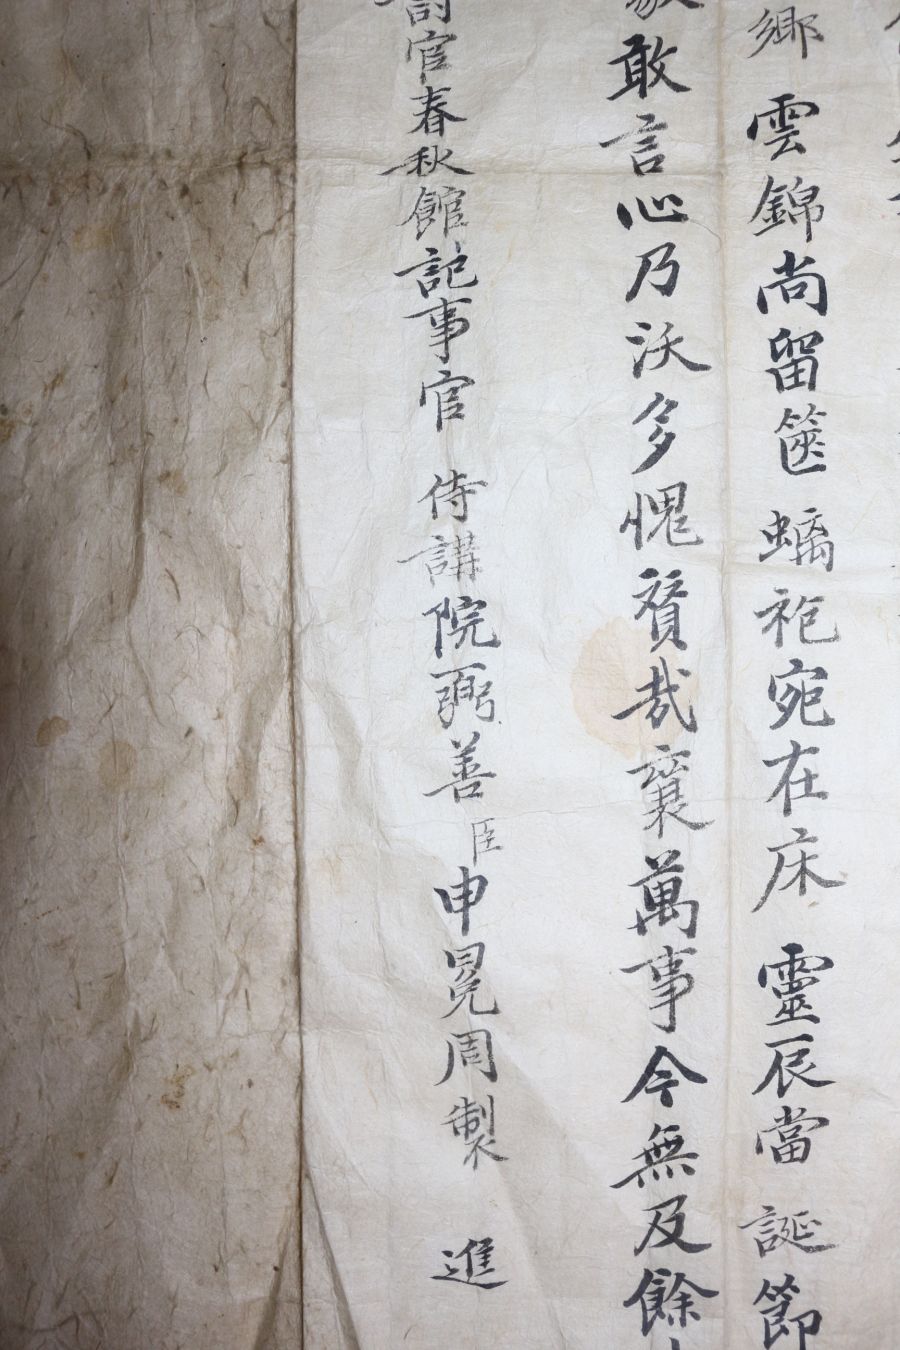 鄉 雲錦尚留篋 螭袍宛在床 靈辰當 誕節
敢言心乃沃多愧贊哉襄萬事今無及餘
討官春秋館記事官 侍講院弼善臣申冕周製 進